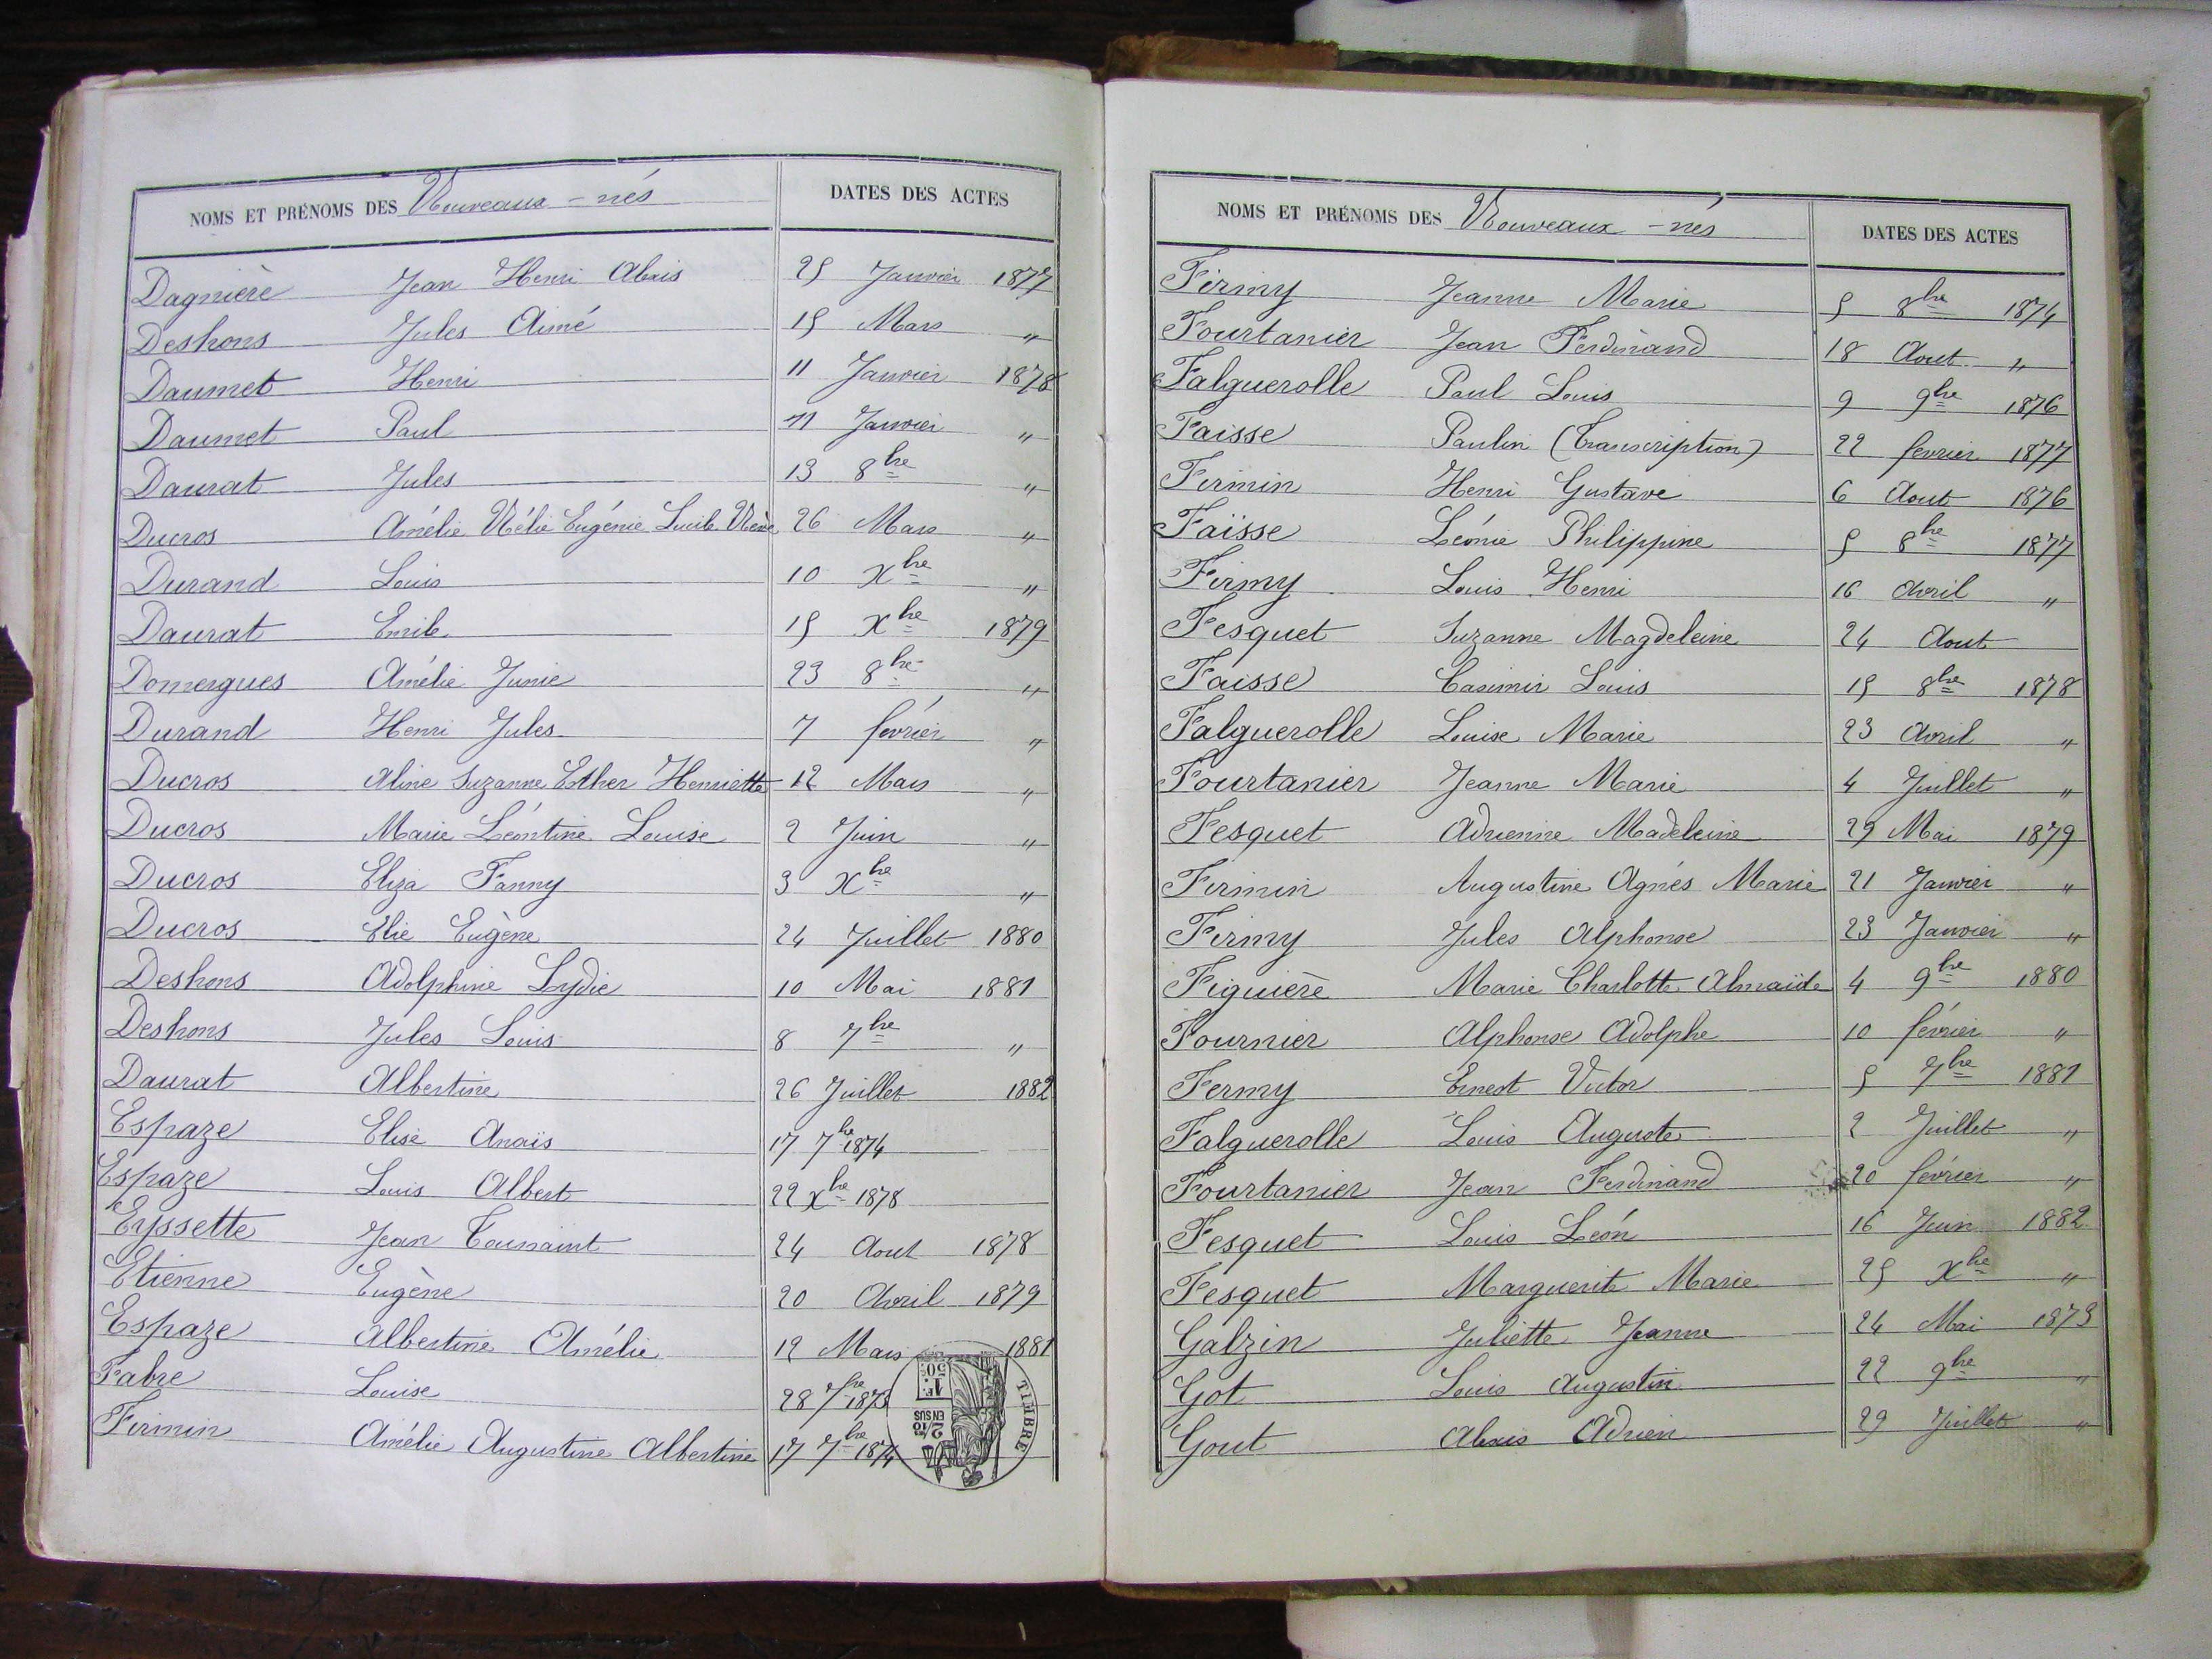 NOMS ET PRÉNOMS DES Nouveaux-nés DATES DES ACTES
Dagnière Jean Henri Alexis 25 Janvier 1877
Deshons Jules Aimé 15 Mars "
Daumet Henri 11 Janvier 1878
Daumet Paul 11 Janvier "
Daurat Jules 13 8bre "
Ducros Amélie Nélie Eugénie Lucile 26 Mars "
Durand Louis 10 Xbre "
Daurat Emile 15 Xbre 1879
Domergues Amélie Junie 23 8bre "
Durand Henri Jules 7 février "
Ducros Aline Suzanne Esther Henriette 12 Mars "
Ducros Marie Léontine Louise 2 Juin "
Ducros Eliza Fanny 3 Xbre "
Ducros Elie Eugène 24 Juillet 1880
Deshons Adolphine Lydie 10 Mai 1881
Deshons Jules Louis 8 7bre "
Daurat Albertine 26 Juillet 1882
Espaze Elise Anaïs 17 7bre 1874
Espaze Louis Albert 22 Xbre 1878
Eyssette Jean Toussaint 24 Aout 1878
Etienne Eugène 20 Avril 1879
Espaze Albertine Amélie 12 Mars 1881
Fabre Louise 28 7bre 1873
Firmin Amélie Augustine Albertine 17 7bre 1874
TIMBRE
1F 50c
2/10 EN SUS
NOMS ET PRÉNOMS DES Nouveaux-nés DATES DES ACTES
Firmy Jeanne Marie 5 8bre 1874
Fourtanier Jean Ferdinand 18 Aout "
Falguerolle Paul Louis 9 9bre 1876
Faisse Paulin (Transcription) 22 fevrier 1877
Firmin Henri Gustave 6 Aout 1876
Faïsse Léonie Philippine 5 8bre 1877
Firmy Louis Henri 16 Avril "
Fesquet Suzanne Magdeleine 24 Aout
Faisse Casimir Louis 15 8bre 1878
Falguerolle Louise Marie 23 Avril "
Fourtanier Jeanne Marie 4 Juillet "
Fesquet Adrienne Madeleine 29 Mai 1879
Firmin Augustine Agnès Marie 21 Janvier "
Firmy Jules Alphonse 23 Janvier "
Figuière Marie Charlotte Almaïde 4 9bre 1880
Fournier Alphonse Adolphe 10 février "
Fermy Ernest Victor 5 7bre 1881
Falguerolle Louis Auguste 2 Juillet "
Fourtanier Jean Ferdinand 20 février "
Fesquet Louis Léon 16 Juin 1882
Fesquet Marguerite Marie 25 Xbre "
Galzin Juliette Jeanne 24 Mai 1873
Got Louis Augustin 22 9bre "
Gout Alexis Adrien 29 Juillet "